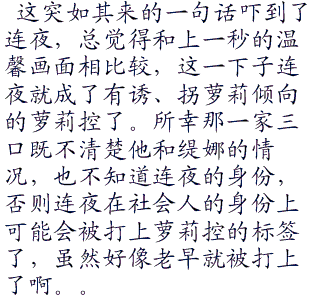 这突如其来的一句话吓到了
连夜，总觉得和上一秒的温
馨画面相比较，这一下子连
夜就成了有诱、拐萝莉倾向
的萝莉控了。所幸那一家三
口既不清楚他和缇娜的情
况，也不知道连夜的身份，
否则连夜在社会人的身份上
可能会被打上萝莉控的标签
了，虽然好像老早就被打上
了啊。。